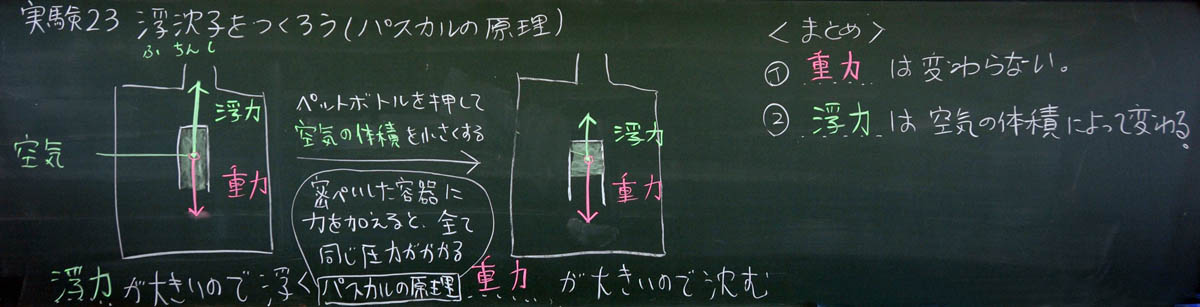 実験23 浮沈子をつくろう(パスカルの原理)
ふちんし
浮力
空気
重力
ペットボトルを押して
空気の体積を小さくする
密ぺいした容器に
力を加えると、全て
同じ圧力がかかる
パスカルの原理
浮力
重力
浮力が大きいので浮く
重力が大きいので沈む
<まとめ>
① 重力は変わらない。
② 浮力は空気の体積によって変わる。